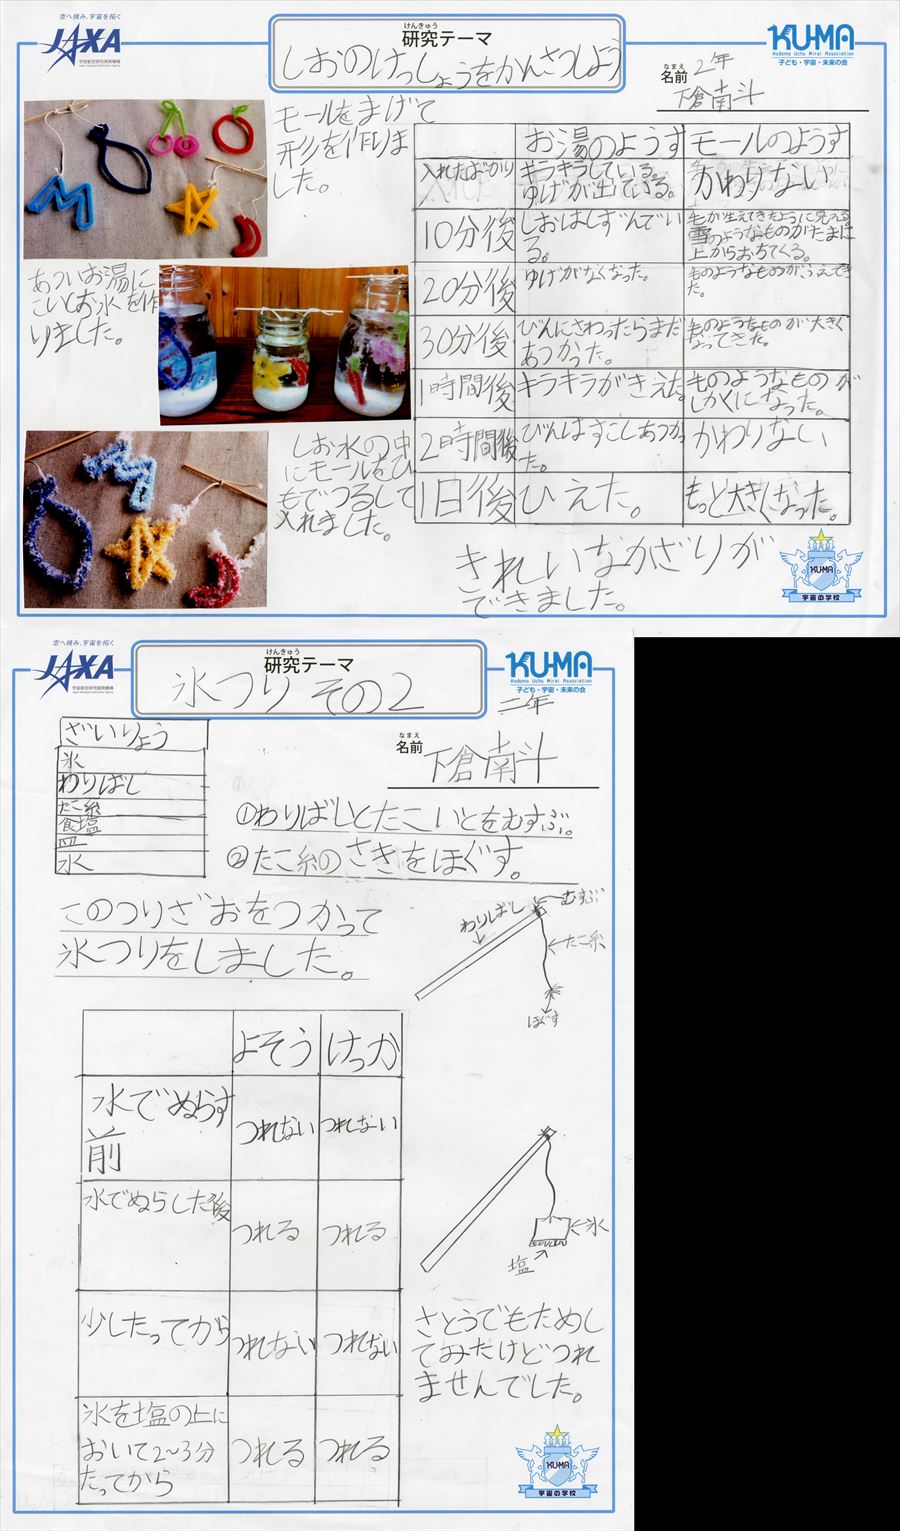 空へ挑み、宇宙を拓く
JAXA
宇宙航空研究開発機構
Japan Aerospace Exploration Agency
けんきゅう
研究テーマ
しおのけっしょうをかんさつしよう
KU-MA
Kodomo Uchu Mirai Association
子ども・宇宙・未来の会
なまえ
名前
2年
下倉南斗
モールをまげて
形を作りま
した。
あついお湯に
こいしお水を作
りました。
しお水の中
にモールをひ
もでつるして
入れました。
お湯のようす モールのようす
入れたばかり キラキラしている。ゆげが出ている。 かわりない
10分後 しおはしずんでいる。 毛が生えてきたように見える 雪のようなものがたまに上からおちてくる。
20分後 ゆげがなくなった。 毛のようなものがふえてきた。
30分後 びんにさわったらまだあつかった。 毛のようなものが大きくなってきた。
1時間後 キラキラがきえた。 毛のようなものがしかくになった。
2時間後 びんはすこしあつかった。 かわりない
1日後 ひえた。 もっと大きくなった。
きれいなかざりが
できました。
KU-MA
宇宙の学校
空へ挑み、宇宙を拓く
JAXA
宇宙航空研究開発機構
Japan Aerospace Exploration Agency
けんきゅう
研究テーマ
氷つり その2
KU-MA
Kodomo Uchu Mirai Association
子ども・宇宙・未来の会
二年
なまえ
名前
下倉南斗
ざいりょう
氷
わりばし
たこ糸
食塩
皿
水
①わりばしとたこいとをむすぶ。
②たこ糸のさきをほぐす。
このつりざおをつかって
氷つりをしました。
わりばし
むすぶ
たこ糸
ほぐす
よそう けっか
水でぬらす前 つれない つれない
水でぬらした後 つれる つれる
少したってから つれない つれない
氷を塩の上において2~3分たってから つれる つれる
氷
塩
さとうでもためし
てみたけどつれ
ませんでした。
KU-MA
宇宙の学校